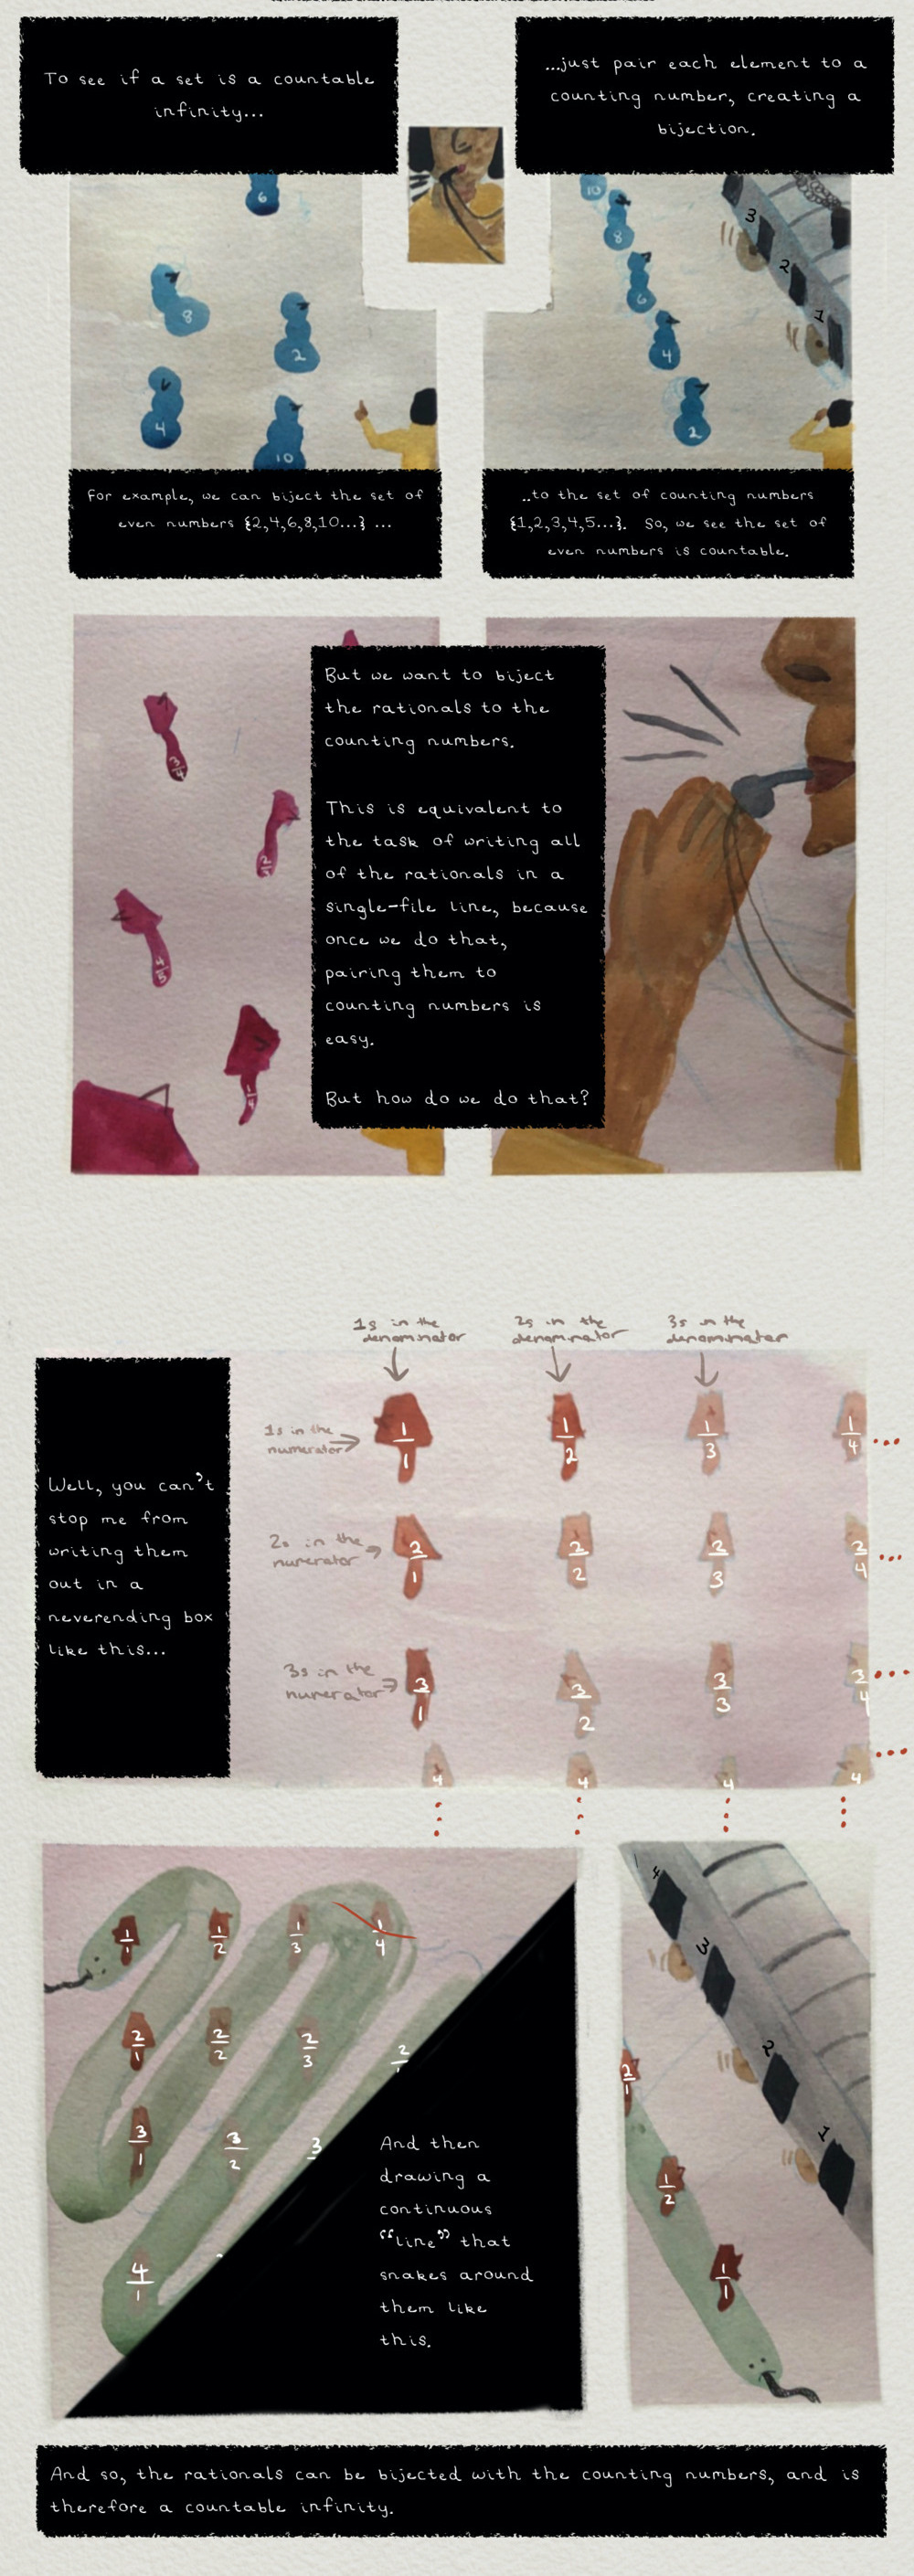 To see if a set is a countable
infinity...
...just pair each element to a
counting number, creating a
bijection.
6
8
2
4
10
10
8
6
4
2
3
2
1
For example, we can biject the set of
even numbers {2,4,6,8,10...} ...
...to the set of counting numbers
{1,2,3,4,5...}. So, we see the set of
even numbers is countable.
3/4
4/5
But we want to biject
the rationals to the
counting numbers.
This is equivalent to
the task of writing all
of the rationals in a
single-file line, because
once we do that,
pairing them to
counting numbers is
easy.
But how do we do that?
1s in the
denominator
2s in the
denominator
3s in the
denominator
Well, you can't
stop me from
writing them
out in a
neverending box
like this...
1s in the
numerator
1/1 1/2 1/3 1/4 ...
2s in the
numerator
2/1 2/2 2/3 2/4 ...
3s in the
numerator
3/1 3/2 3/3 3/4 ...
4 4 4 4 ...
1/1 1/2 1/3 1/4
2/1 2/2 2/3 2
3/1 3/2 3
4/1
And then
drawing a
continuous
“line” that
snakes around
them like
this.
4
3
2
1
2/1
1/2
1/1
And so, the rationals can be bijected with the counting numbers, and is
therefore a countable infinity.